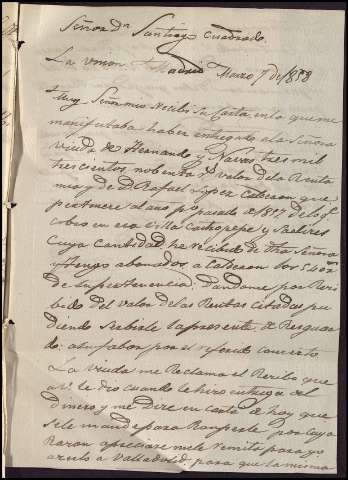 Señor Dn Santiago Cuadrado.
La union Madrid Marzo 7 de 1858
Muy Sr mio Recibi su Carta en la que me
manifestaba haber entregado a la Señora
viuda de Hernando y Navas tres mil
trescientos nobenta rs valor de la Renta
mia y de Dn Rafael Lopez Cabezon que
pertenece al año po pasado de 1857 de los
cobros en esa villa Castropepe y
Cuya Cantidad he recibido de dha Señora
y tengo abonados a Cabezon los
de la pertenencia: Dandome por Reci
bido del valor de las Rentas citadas pu
diendo serbirle la presente de Resguar
do: a su fabor por el referido concepto
La viuda me Reclama el Recibo que
a V. le dio cuando le hizo entrega del
dinero y me dice en carta de hoy que
se le mande para Romperle por cuya
Razon me le remita para yo
a Valladolid para que la misma